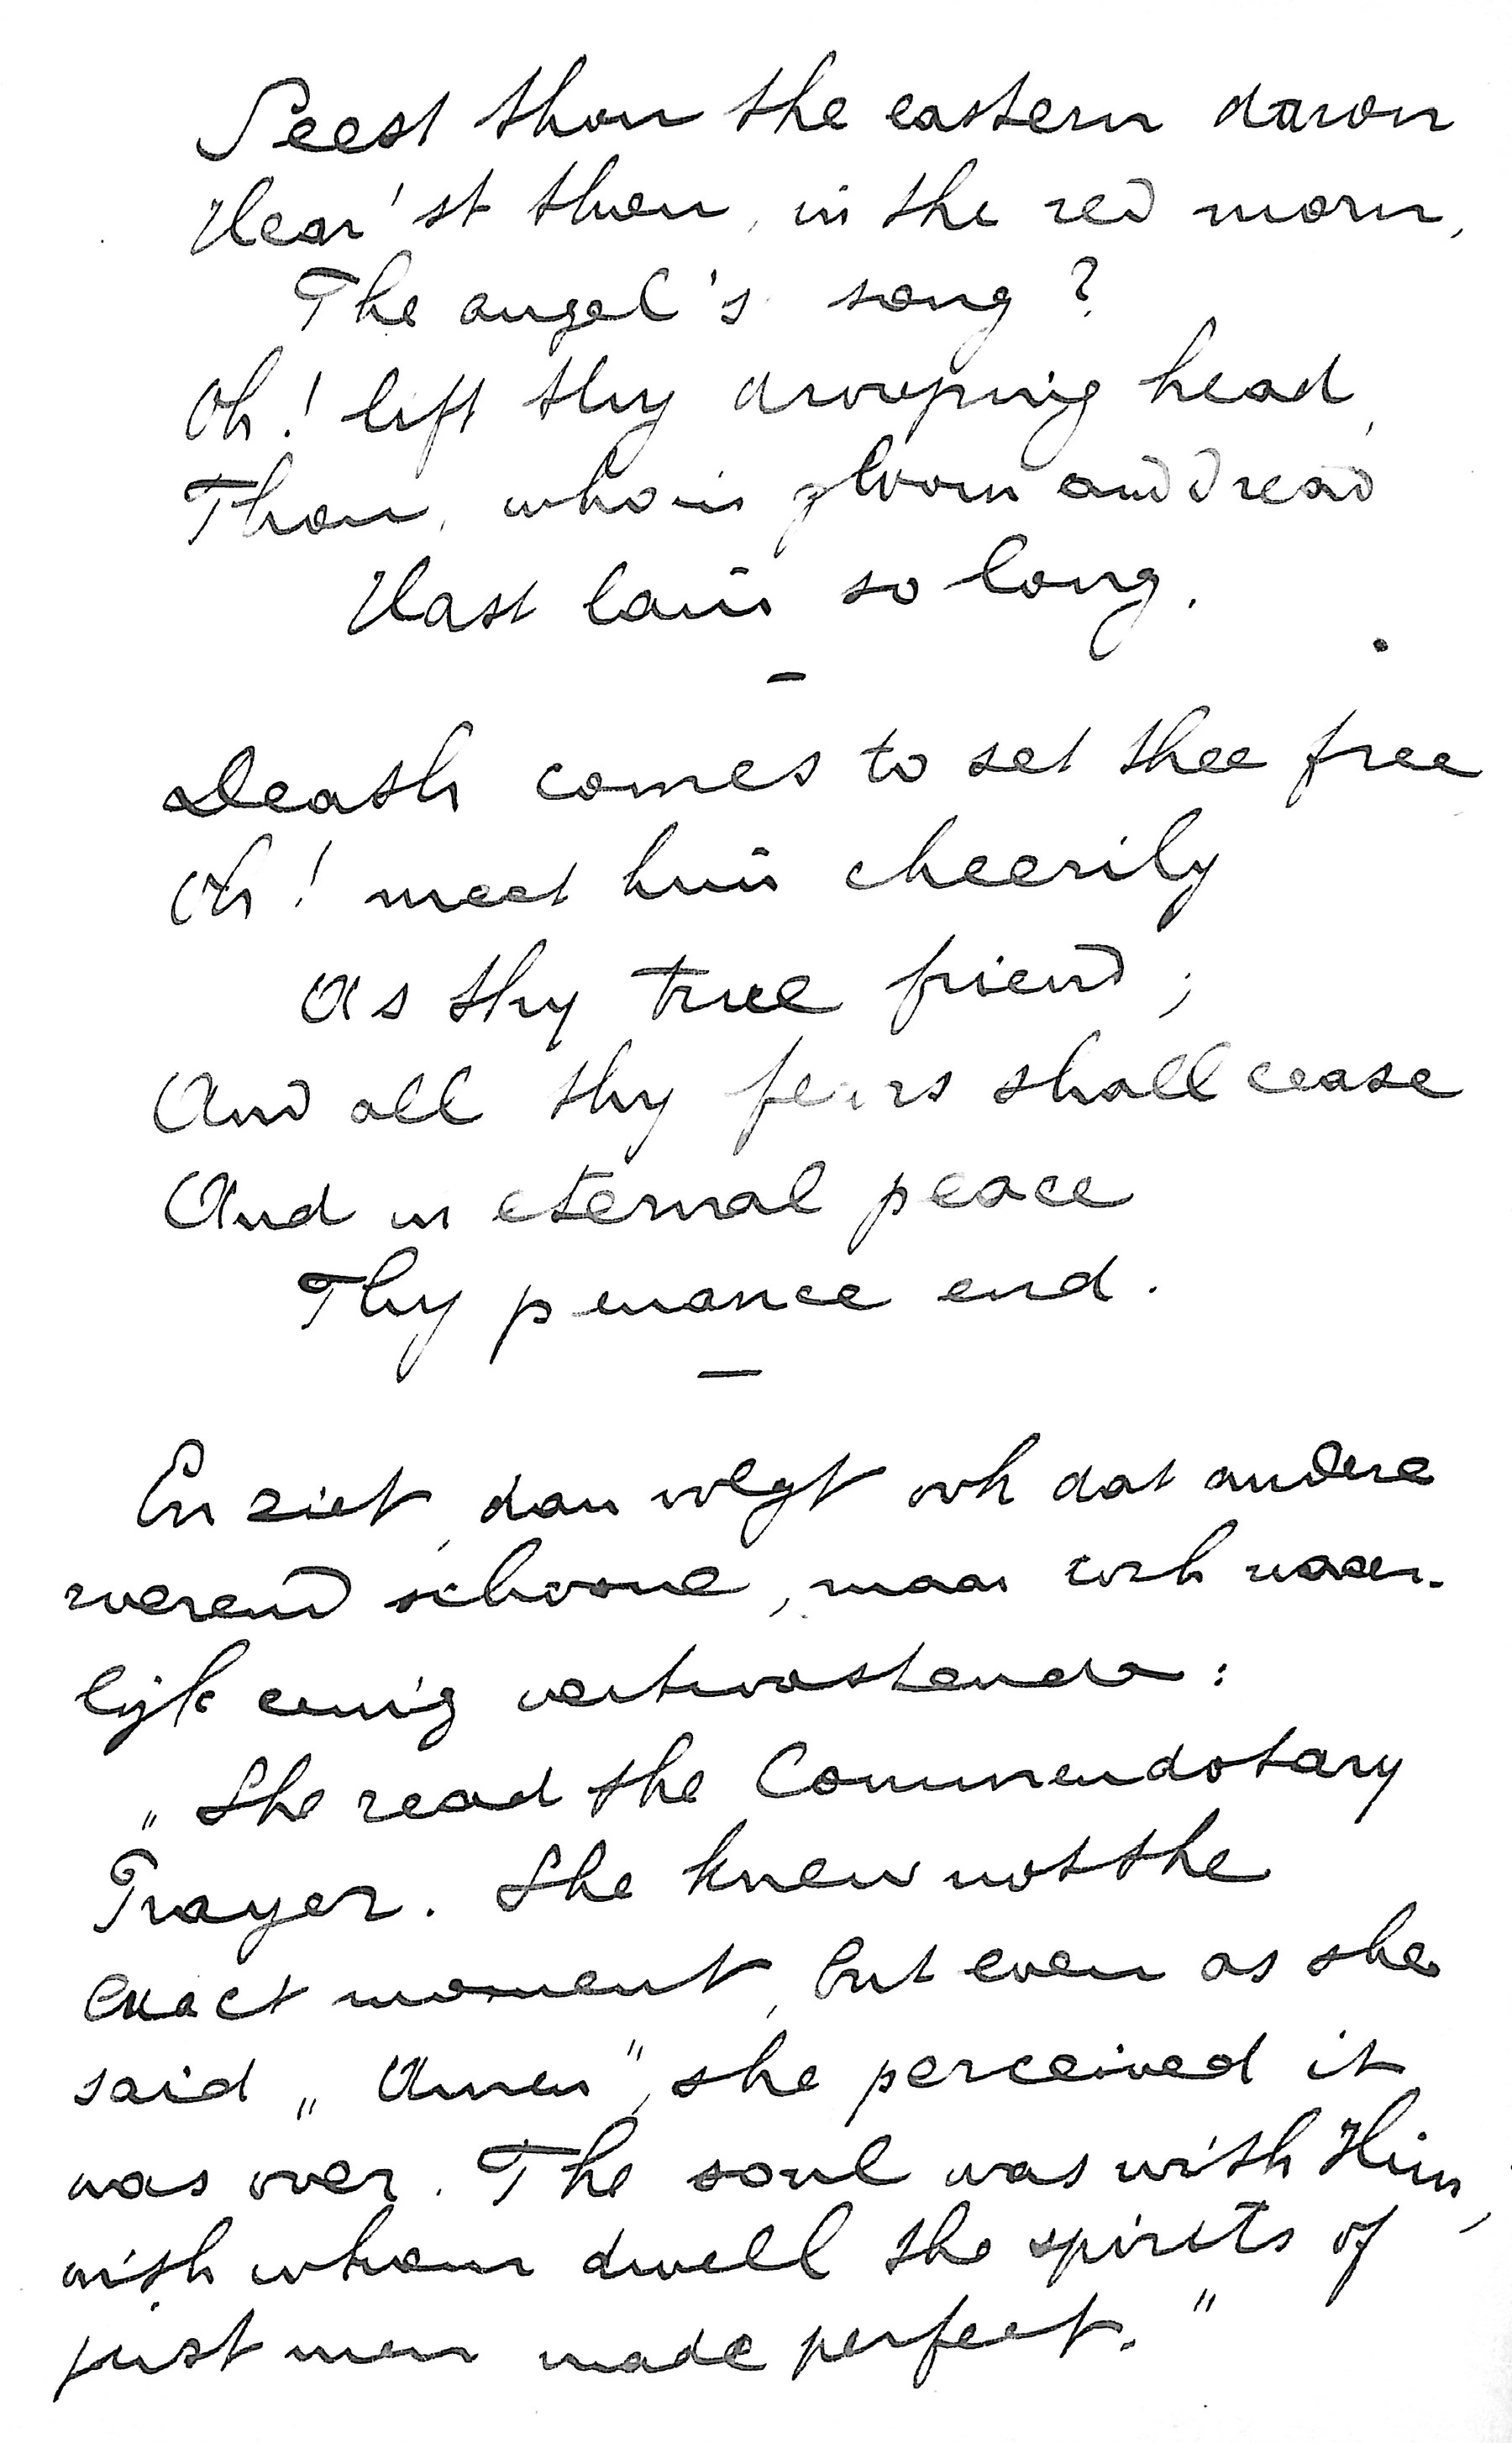 Seest thou the eastern dawn
Hear'st thou, in the red morn,
The angel's song?
Oh! lift thy drooping head,
Thou, who in gloom and dread
Hast lain so long.
—
Death comes to set thee free
Oh! meet him cheerily
As thy true friend;
And all thy fears shall cease
And in eternal peace
Thy penance end.
—
En ziet, dan volgt ook dat andere
roerend schoone, maar toch waar-
lijk eenig vertroostende:
„She read the Commendatary
Prayer. She knew not the
exact moment, but even as she
said „Amen", she perceived it
was over. The soul was with Him,
with whom dwell the spirits of
just men made perfect."